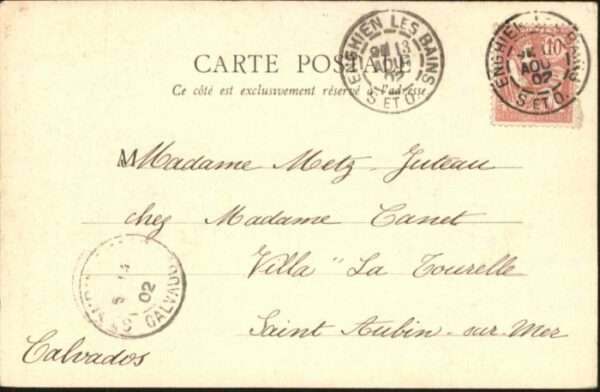 CARTE POSTALE
Ce côté est exclusivement réservé à l'adresse
ENGHIEN LES BAINS
13
AOU
02
S. ET O.
10
ENGHIEN BAINS
AOU
02
S. ET O.
M Madame Metz-Juteau
chez Madame Canet
Villa "La Tourelle
Saint Aubin-sur-Mer
Calvados
02
CALVADOS